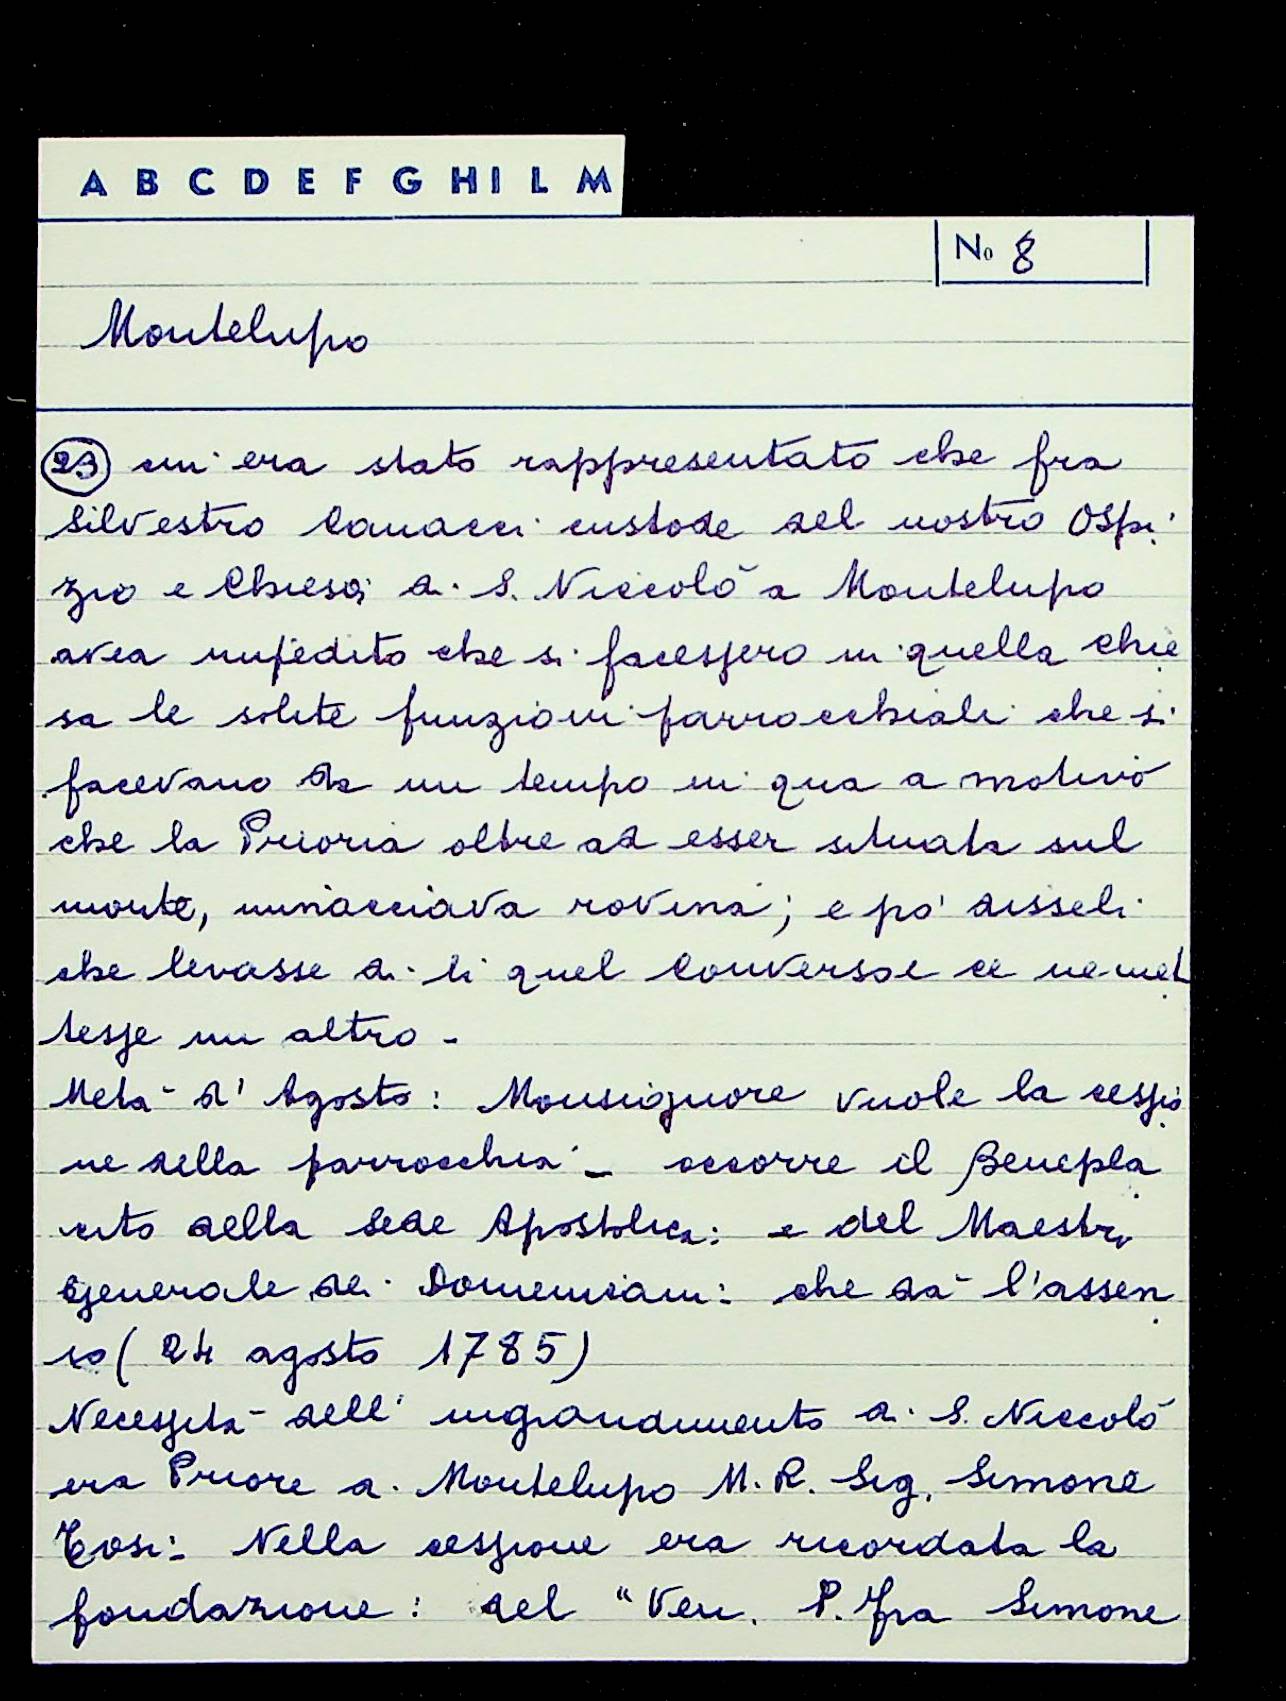 A B C D E F G H I L M
No 8
Montelupo
23 mi era stato rappresentato che fra
Silvestro Canacci custode del nostro Ospi
zio e Chiesa di S. Niccolò a Montelupo
avea impedito che si facessero in quella chie
sa le solite funzioni parrocchiali che si
facevano da un tempo in qua a motivo
che la Prioria oltre ad esser situata sul
monte, minacciava rovina; e poi disseli
che levasse di lì quel Converso e ce ne met
tesse un altro -
Metà d'Agosto: Monsignore vuole la cessio
ne della parrocchia - occorre il Benepla
cito della Sede Apostolica: e del Maestro
Generale dei Domenicani: che dà l'assen
so ( 24 agosto 1785)
Necessità dell'ingrandimento di S. Niccolò
era Priore a Montelupo M. R. Sig. Simone
Tosi: Nella cessione era ricordata la
fondazione: del "Ven. P. fra Simone